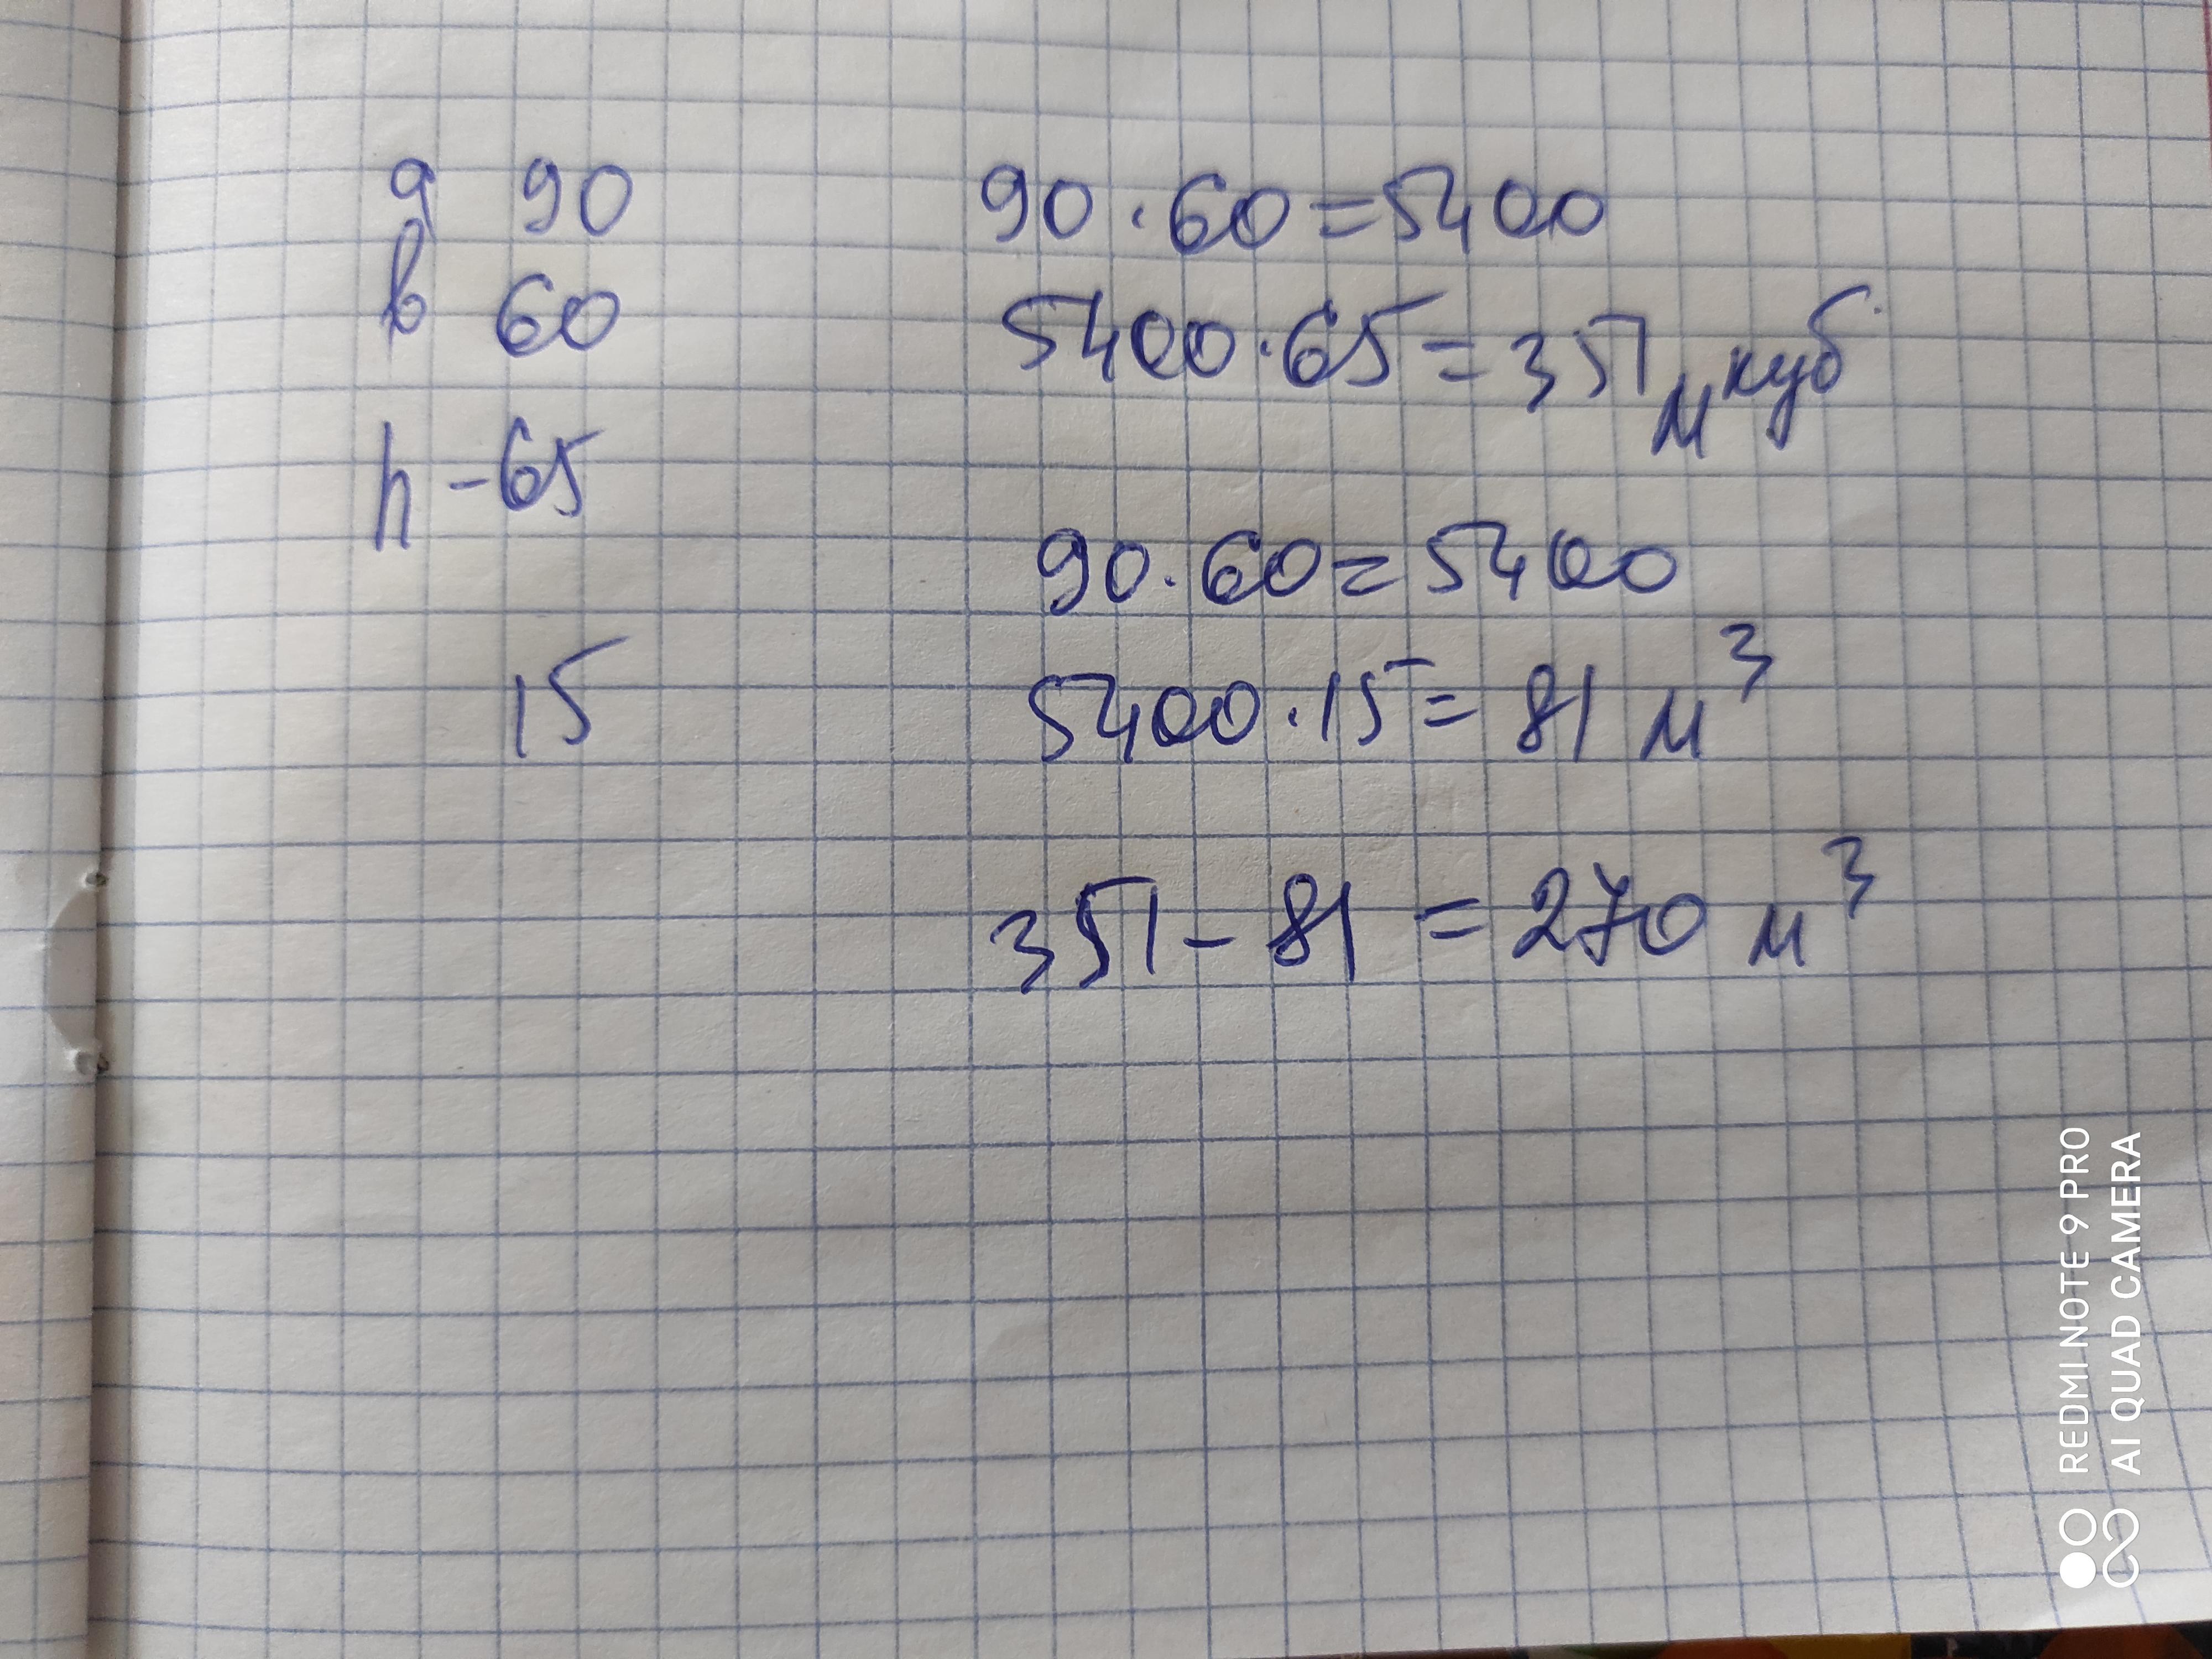 а 90
в 60
h - 65
15
90 · 60 = 5400
5400 · 65 = 351 м куб.
90 · 60 = 5400
5400 · 15 = 81 м³
351 - 81 = 270 м³
REDMI NOTE 9 PRO
AI QUAD CAMERA